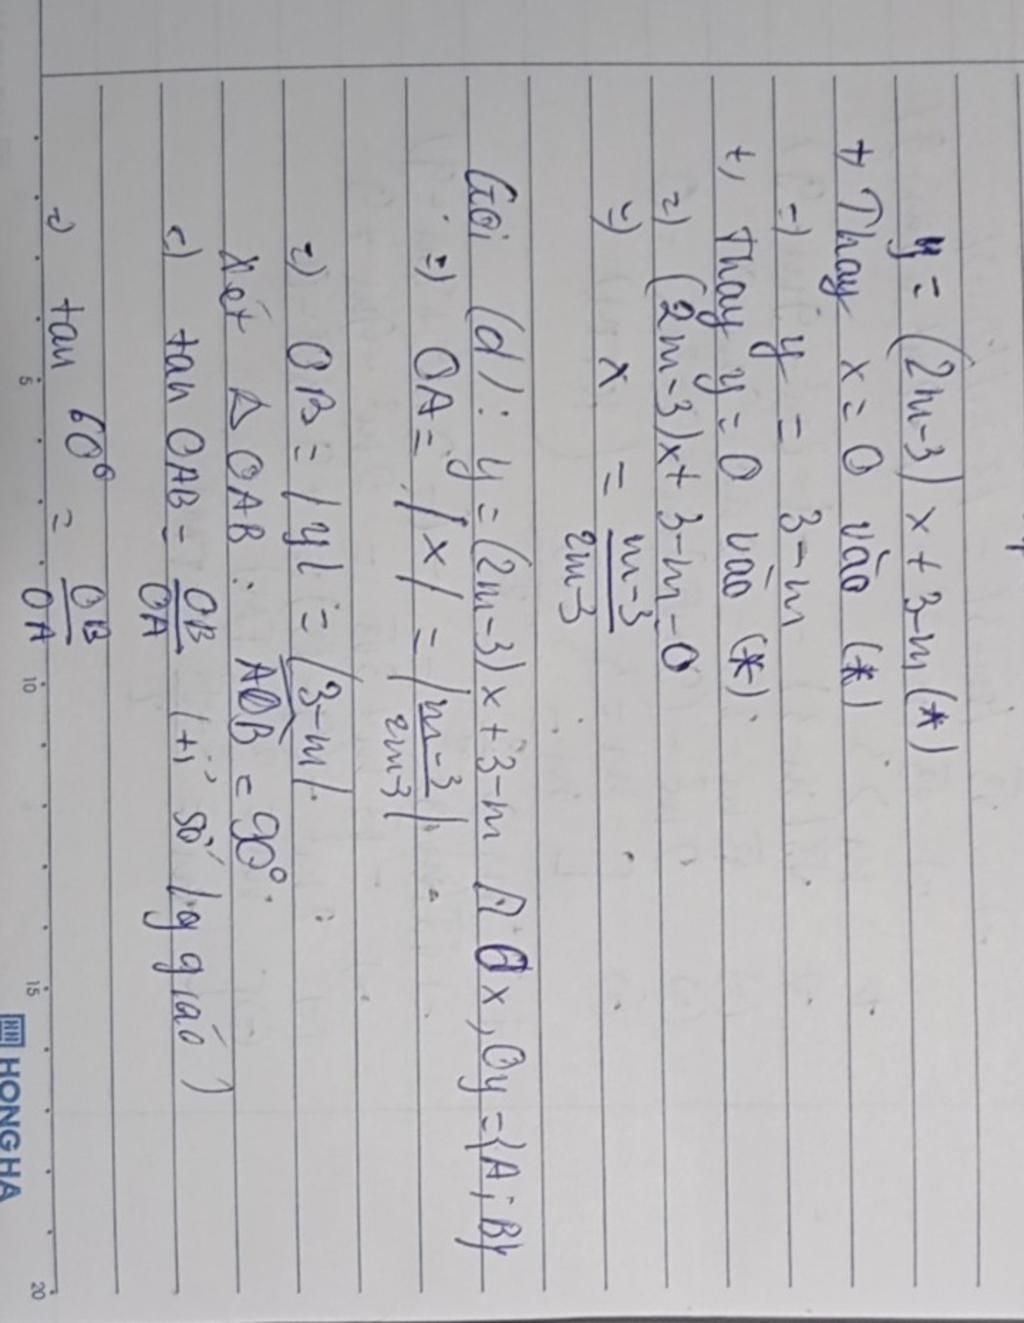 y = (2m-3) x + 3-m (*)
+, Thay x = 0 vào (*)
=) y = 3-m
+, Thay y = 0 vào (*)
=) (2m-3)x + 3-m = 0
=) x = m-3 / 2m-3
Gọi (d): y = (2m-3) x + 3-m ∩ Ox, Oy = {A; B}
=) OA = |x| = |m-3 / 2m-3|
=) OB = |y| = |3-m|
Xét Δ OAB: AOB = 90°
=) tan OAB = OB / OA (tỉ số lg giác)
=) tan 60° = OB / OA
5 10 15 20
HONG HA